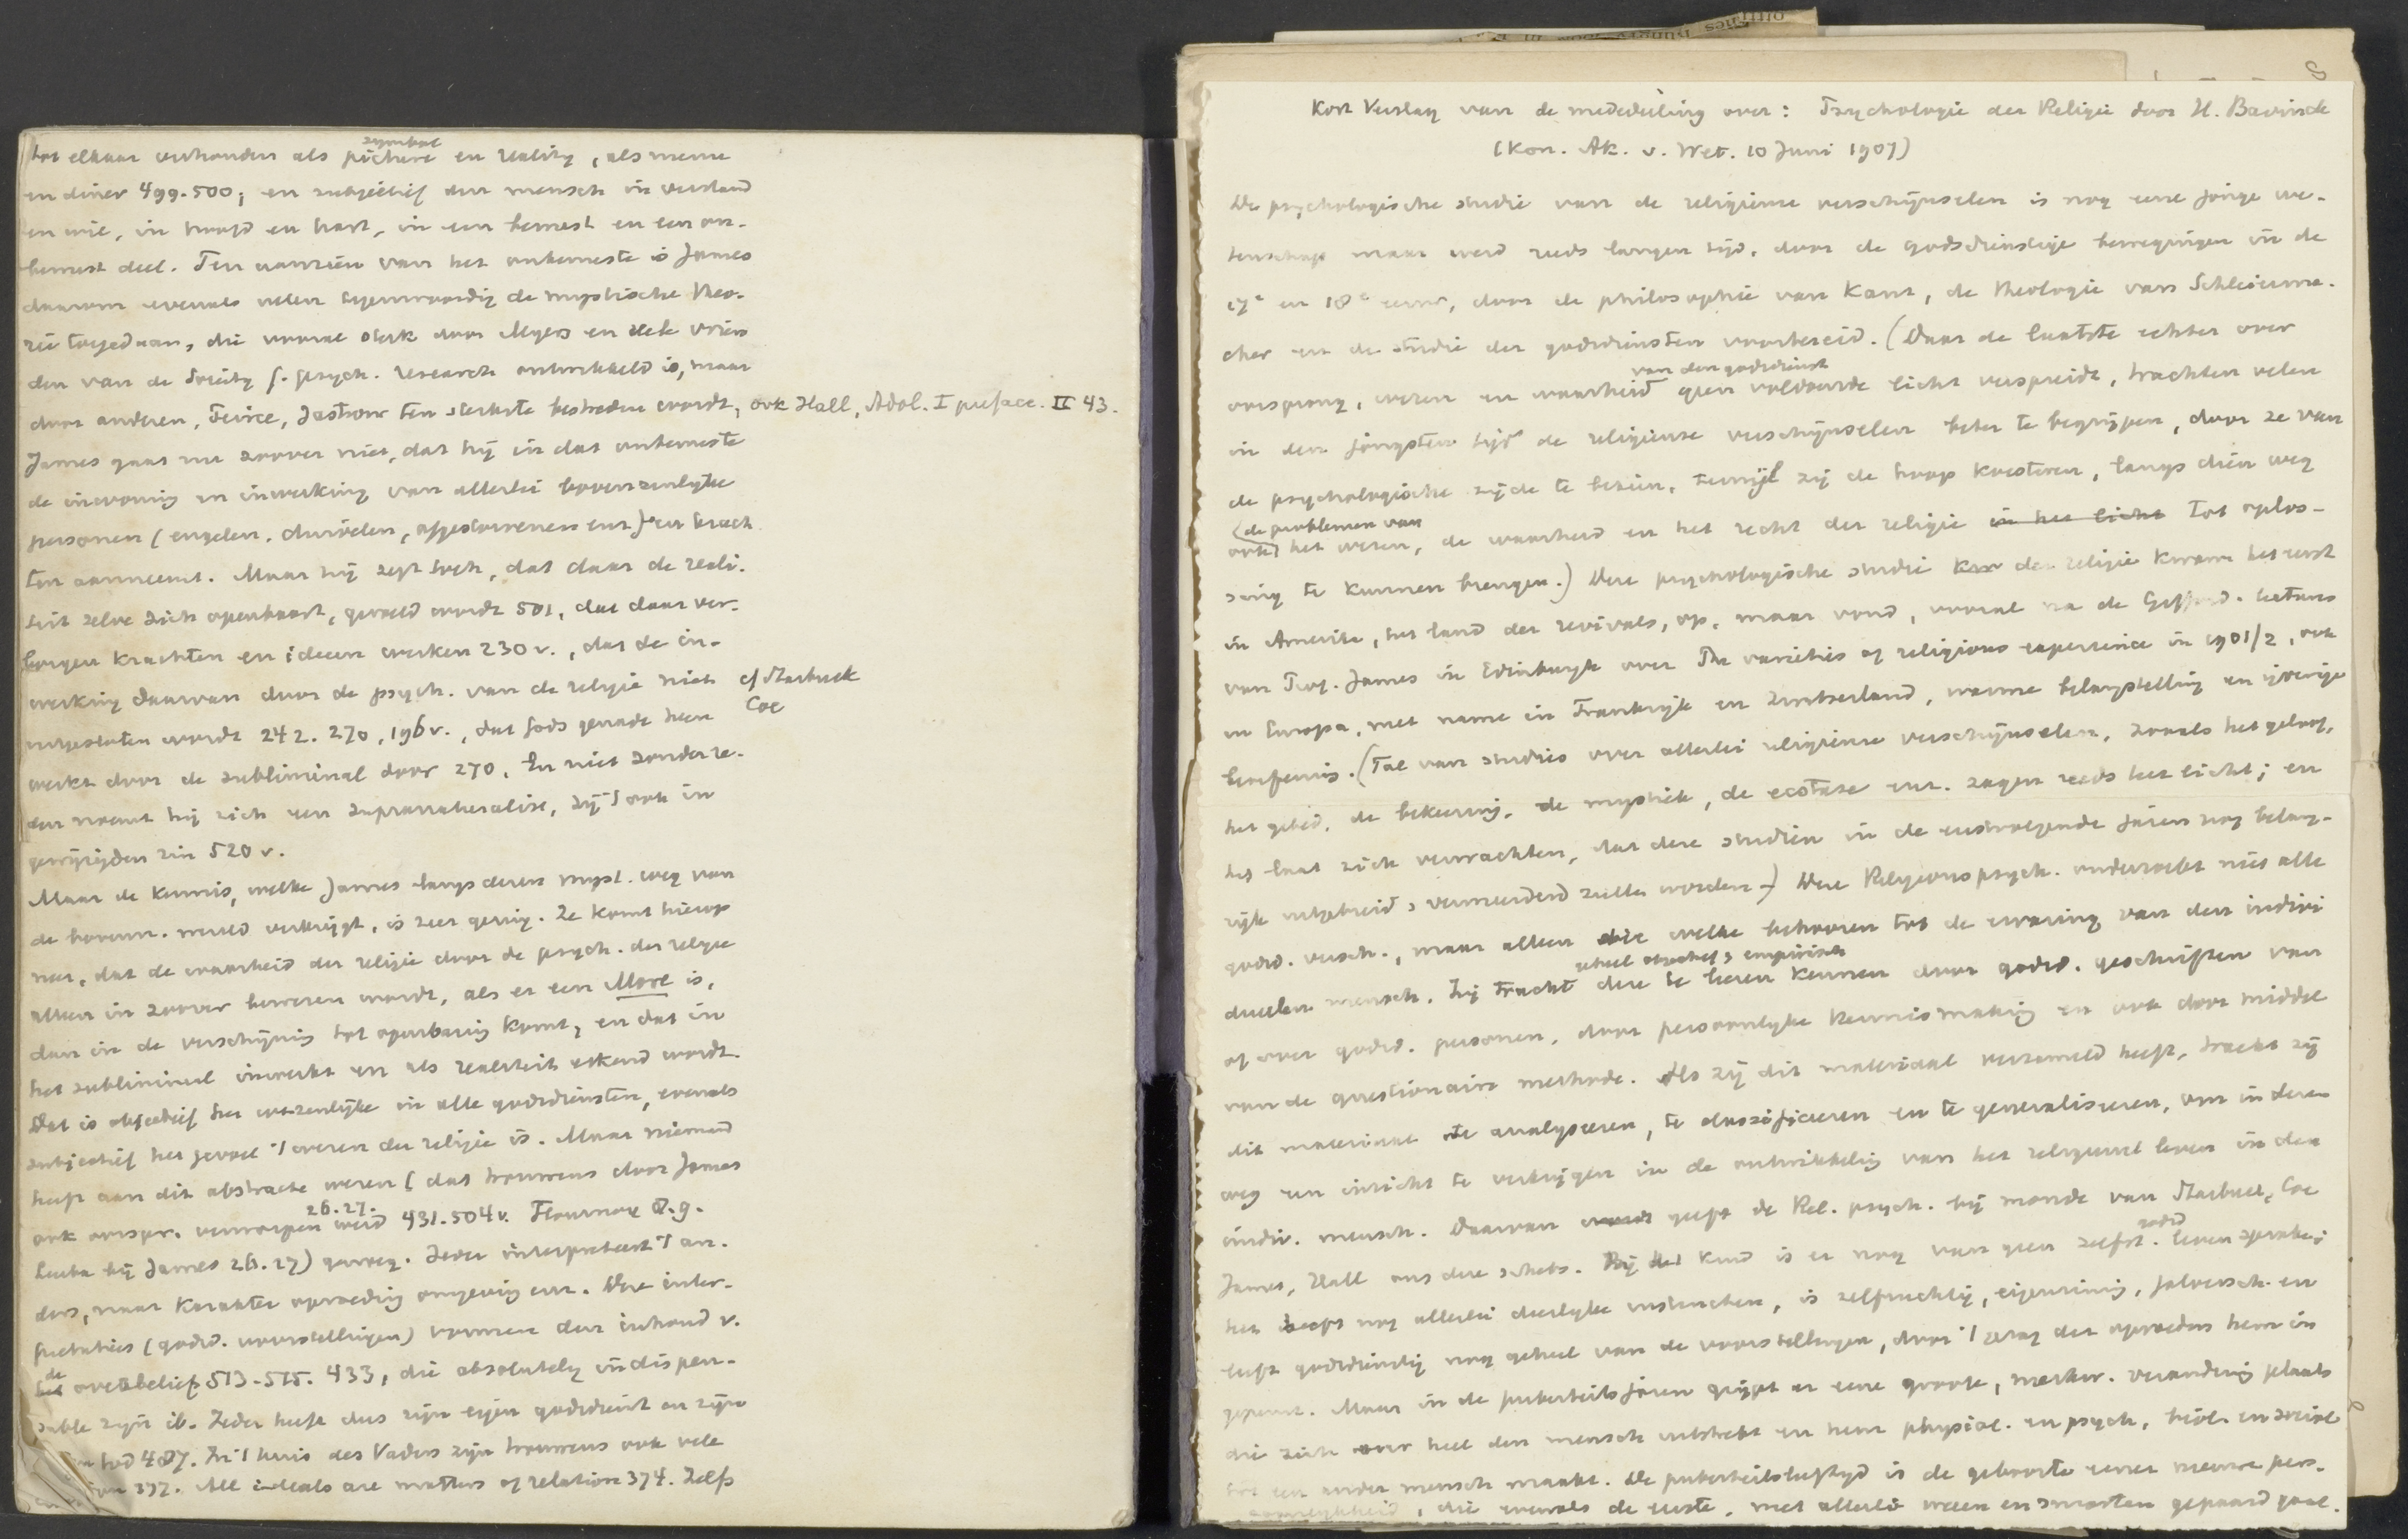 tot elkaar verhouden als symbool picture en reality, als menu
en diner 499-500; en subjectief den mensch in verstand
en wil, in hoofd en hart, in een bewust en een on-
bewust deel. Ten aanzien van het onbewuste is James
daarom evenals velen tegenwoordig de mystische theo-
rie toegedaan, die vooral sterk door Myers en vele vrien
den van de Society f. psych. research ontwikkeld is, maar
door anderen, Peirce, Jastrow ten sterkste bestreden wordt, ook Hall, Adol. I preface. II 43.
James gaat nu zoover niet, dat hij in dat onbewuste
de inwoning en inwerking van allerlei bovenzinlijke
personen (engelen, duivelen, afgestorvenen enz) en krach
ten aanneemt. Maar hij zegt toch, dat daar de reali-
teit zelve zich openbaart, gevoeld wordt 501, dat daar ver-
borgen krachten en ideeen werken 230 v., dat de in-
werking daarvan door de psych. van de religie niet cf Starbuck
uitgesloten wordt 242. 270, 196 v., dat Gods genade heen Coe
werkt door de subliminal door 270. En niet zonder re-
den noemt hij zich een supranaturalist, zij 't ook in
gewijzigden zin 520 v.
Maar de kennis, welke James langs dezen myst. weg van
de bovenn. wereld verkrijgt, is zeer gering. Ze komt hierop
neer, dat de waarheid der religie door de psych. der religie
alleen in zoover bewezen wordt, als er een More is,
dan in de verschijning tot openbaring komt, en dat in
het subliminal inwerkt en als realiteit erkend wordt.
Dat is objectief het wezenlijke in alle godsdiensten, evenals
subjectief het gevoel 't wezen der religie is. Maar niemand
heeft aan dit abstracte wezen (dat trouwens door James
ook oorspr. verworpen werd 26.27. 431. 504 v. Flournoy
Leuba bij James 26.27) genoeg. Ieder interpreteert 't an-
ders, naar karakter opvoeding omgeving enz. Deze inter-
pretaties (godsd. voorstellingen) vormen den inhoud v.
de overbelief 513-515. 433, die absolutely indispen-
sable zijn ib. Ieder heeft dus zijn eigen godsdienst en zijn
God 487. In 't huis des Vaders zijn trouwens ook vele
377. All ideals are matters of relation 374. Zelfs
Kort Verslag van de mededeeling over: Psychologie der Religie door H. Bavinck
(Kon. Ak. v. Wet. 10 Juni 1907)
De psychologische studie van de religieuse verschijnselen is nog eene jonge we-
tenschap maar werd reeds langen tijd, door de godsdienstige bewegingen in de
17e en 18e eeuw, door de philosophie van Kant, de theologie van Schleierma-
cher en de studie der godsdiensten voorbereid. (Daar de laatste echter over
oorsprong, wezen en waarheid van den godsdienst geen voldoende licht verspreidt, trachten velen
in den jongsten tijd de religieuse verschijnselen beter te begrijpen, door ze van
de psychologische zijde te bezien, terwijl zij de hoop koesteren, langs dien weg
ook de problemen van het wezen, de waarheid en het recht der religie in het licht tot oplos-
sing te kunnen brengen.) Deze psychologische studie der religie kwam het eerst
in Amerika, het land der revivals, op, maar vond, vooral na de Gifford-lectures
van Prof. James in Edinburgh over The varieties of religious experience in 1901/2, ook
in Europa, met name in Frankrijk en Zwitserland, warme belangstelling en ijverige
beoefenis. (Tal van studies over allerlei religieuse verschijnselen, zooals het geloof,
het gebed, de bekeering, de mystiek, de ecstase enz. zagen reeds het licht; en
het laat zich verwachten, dat deze studien in de eerstvolgende jaren nog belang-
rijk uitgebreid en vermeerderd zullen worden.) Deze Religionspsych. onderzoekt niet alle
godsd. versch., maar alleen die welke behooren tot de ervaring van den indivi
dueelen mensch. Zij tracht deze geheel objectief en empirisch te leeren kennen door godsd. geschriften van
of over godsd. personen, door persoonlijke kennismaking en ook door middel
van de questionaire methode. Als zij dit materiaal verzameld heeft, tracht zij
dit materiaal te analyseeren, te classificieren en te generaliseren, om in dezen
weg een inzicht te verkrijgen in de ontwikkeling van het religieuse leven in den
indiv. mensch. Daarvan geeft de Rel. psych. bij monde van Starbuck, Coe
James, Hall ons deze schets. Bij het kind is er nog van geen zelfst. godsd. leven sprake;
het heeft nog allerlei dierlijke instincten, is zelfzuchtig, eigenzinnig, jaloersch en
leeft godsdienstig nog geheel van de voorstellingen, door 't gezag der opvoeders hem in
geprent. Maar in de puberteitsjaren grijpt er eene groote, merkw. verandering plaats
die zich over heel den mensch uitstrekt en hem physisch en psych., biol. en sociaal
tot een ander mensch maakt. De puberteitsleeftijd is de geboorte eener nieuwe pers-
oonlijkheid, die evenals de eerste, met allerlei weeen en smarten gepaard gaat.